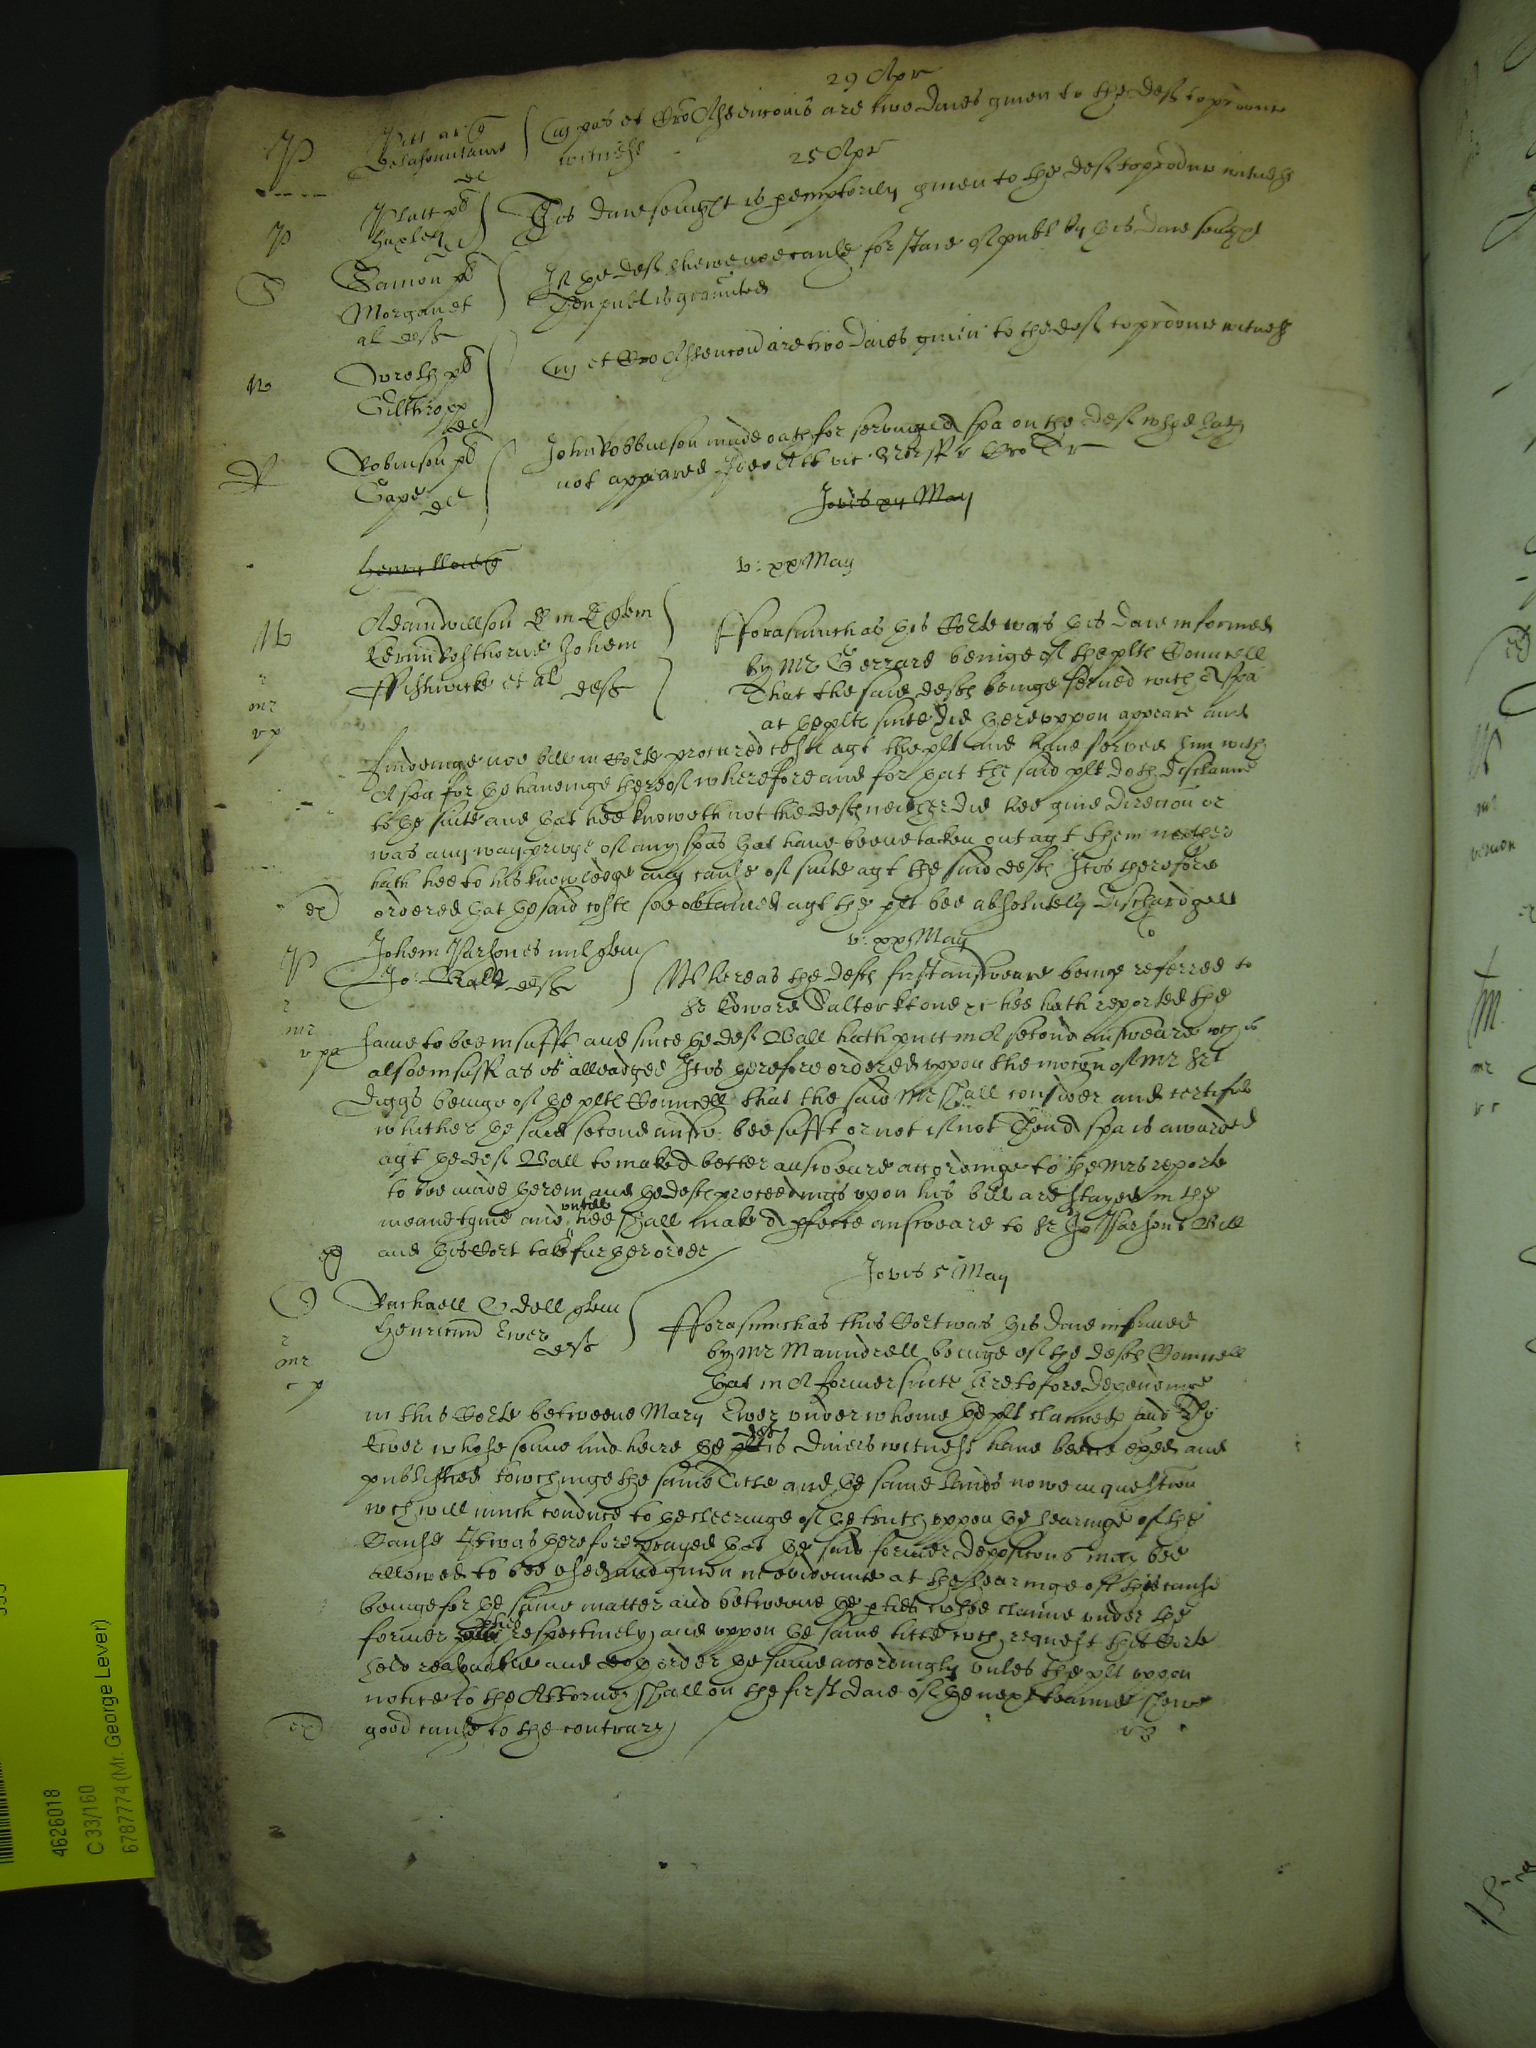 29 Apr
P
Pitt ar q
Delafountaine
de
Cu pas et Cro Assencons are two daies given to the deft to prove
witness
25 Apr
P
Platt pl
Huxley
This daie sought is pemptorily given to the deft to produce witness
S
Samon pl
Morgan et
al deft
If the deft shewe noe cause for staie of publ by this daie sought
Then publ is graunted
W
Wroth pl
Gilthropp
de
Cu et Cro Assencon are two daies given to the deft to prove witness
R
Robinson pl
Cape
de
John Robbinson made oath for serving a spa on the deft whoe hath
not appeared
Jovis xxj May
Henry
v: xx May
W
Adam Willson
Fishwick et al
deft
mr
vp
Forasmuch as this Corte was this daie informed
by Mr Gerrard beinge of the plts Counsell
That the said defts beinge served with a spa
at the plts suite did thereuppon appeare and
findeinge noe bill in Corte procured costs agt the plt and have served him with
A spa for the haveinge thereof wherefore and for that the said plt doth disclaime
to the suite and that hee knoweth not the defts neither did hee give direccon or
was any way privye of any spas that have beene taken out agt them neither
hath hee to his knowledge any cause of suite agt the said defts It is therefore
ex
ordered that the said costs soe obtained agt the plt bee absolutely discharged
v: xx May
P
Johem Parsones mil quer
Jo: Ball deft
mr
v pa
Whereas the defts first answeare beinge referred to
Sr Edward Salter kt one &c hee hath reported the
same to bee insufft and since the deft Ball hath putt in A second answeare wch is
alsoe insufft as is alleadged It is therefore ordered uppon the mocon of Mr Srt
Diggs beinge of the plts Counsell that the said Mr shall consider and certifie
whither the said second answ: bee sufft or not if not Then A spa is awarded
agt the deft Ball to make A better answeare accordinge to the Mrs reporte
to bee made herein and the defts proceedings upon his bill are stayed in the
meane tyme and untill hee shall make A pfecte answeare to Sr Jo Parsons Bill
ex
and this Cort take further order
Jovis 5 May
O
Rachaell Odell quer
Henricum Ewer
deft
mr
Forasmuch as this Cort was this daie informed
by Mr Maundrell beinge of the defts Counsell
that in A former suite heretofore dependinge
in this Corte betweene Mary Ewer under whome the plt claimeth and Tho
Ewer whose sonne and heire the deft is divers witness have beene exed and
published towchinge the same Title and the same landes nowe in question
wch will much conduce to the cleeringe of the truth uppon the hearinge of the
Cause It was therefore prayed that the said former deposicons may bee
allowed to bee used and given in evidence at the hearinge of this cause
beinge for the same matter and betweene the pties whoe claime under the
former respectively and uppon the same title wch request this Corte
held reasonable and doth order the same accordingly unles the plt uppon
notice to the Attorney shall on the first daie of the next tearme shewe
ex
good cause to the contrary
4626018
C 33/160
6787774 (Mr. George Lever)